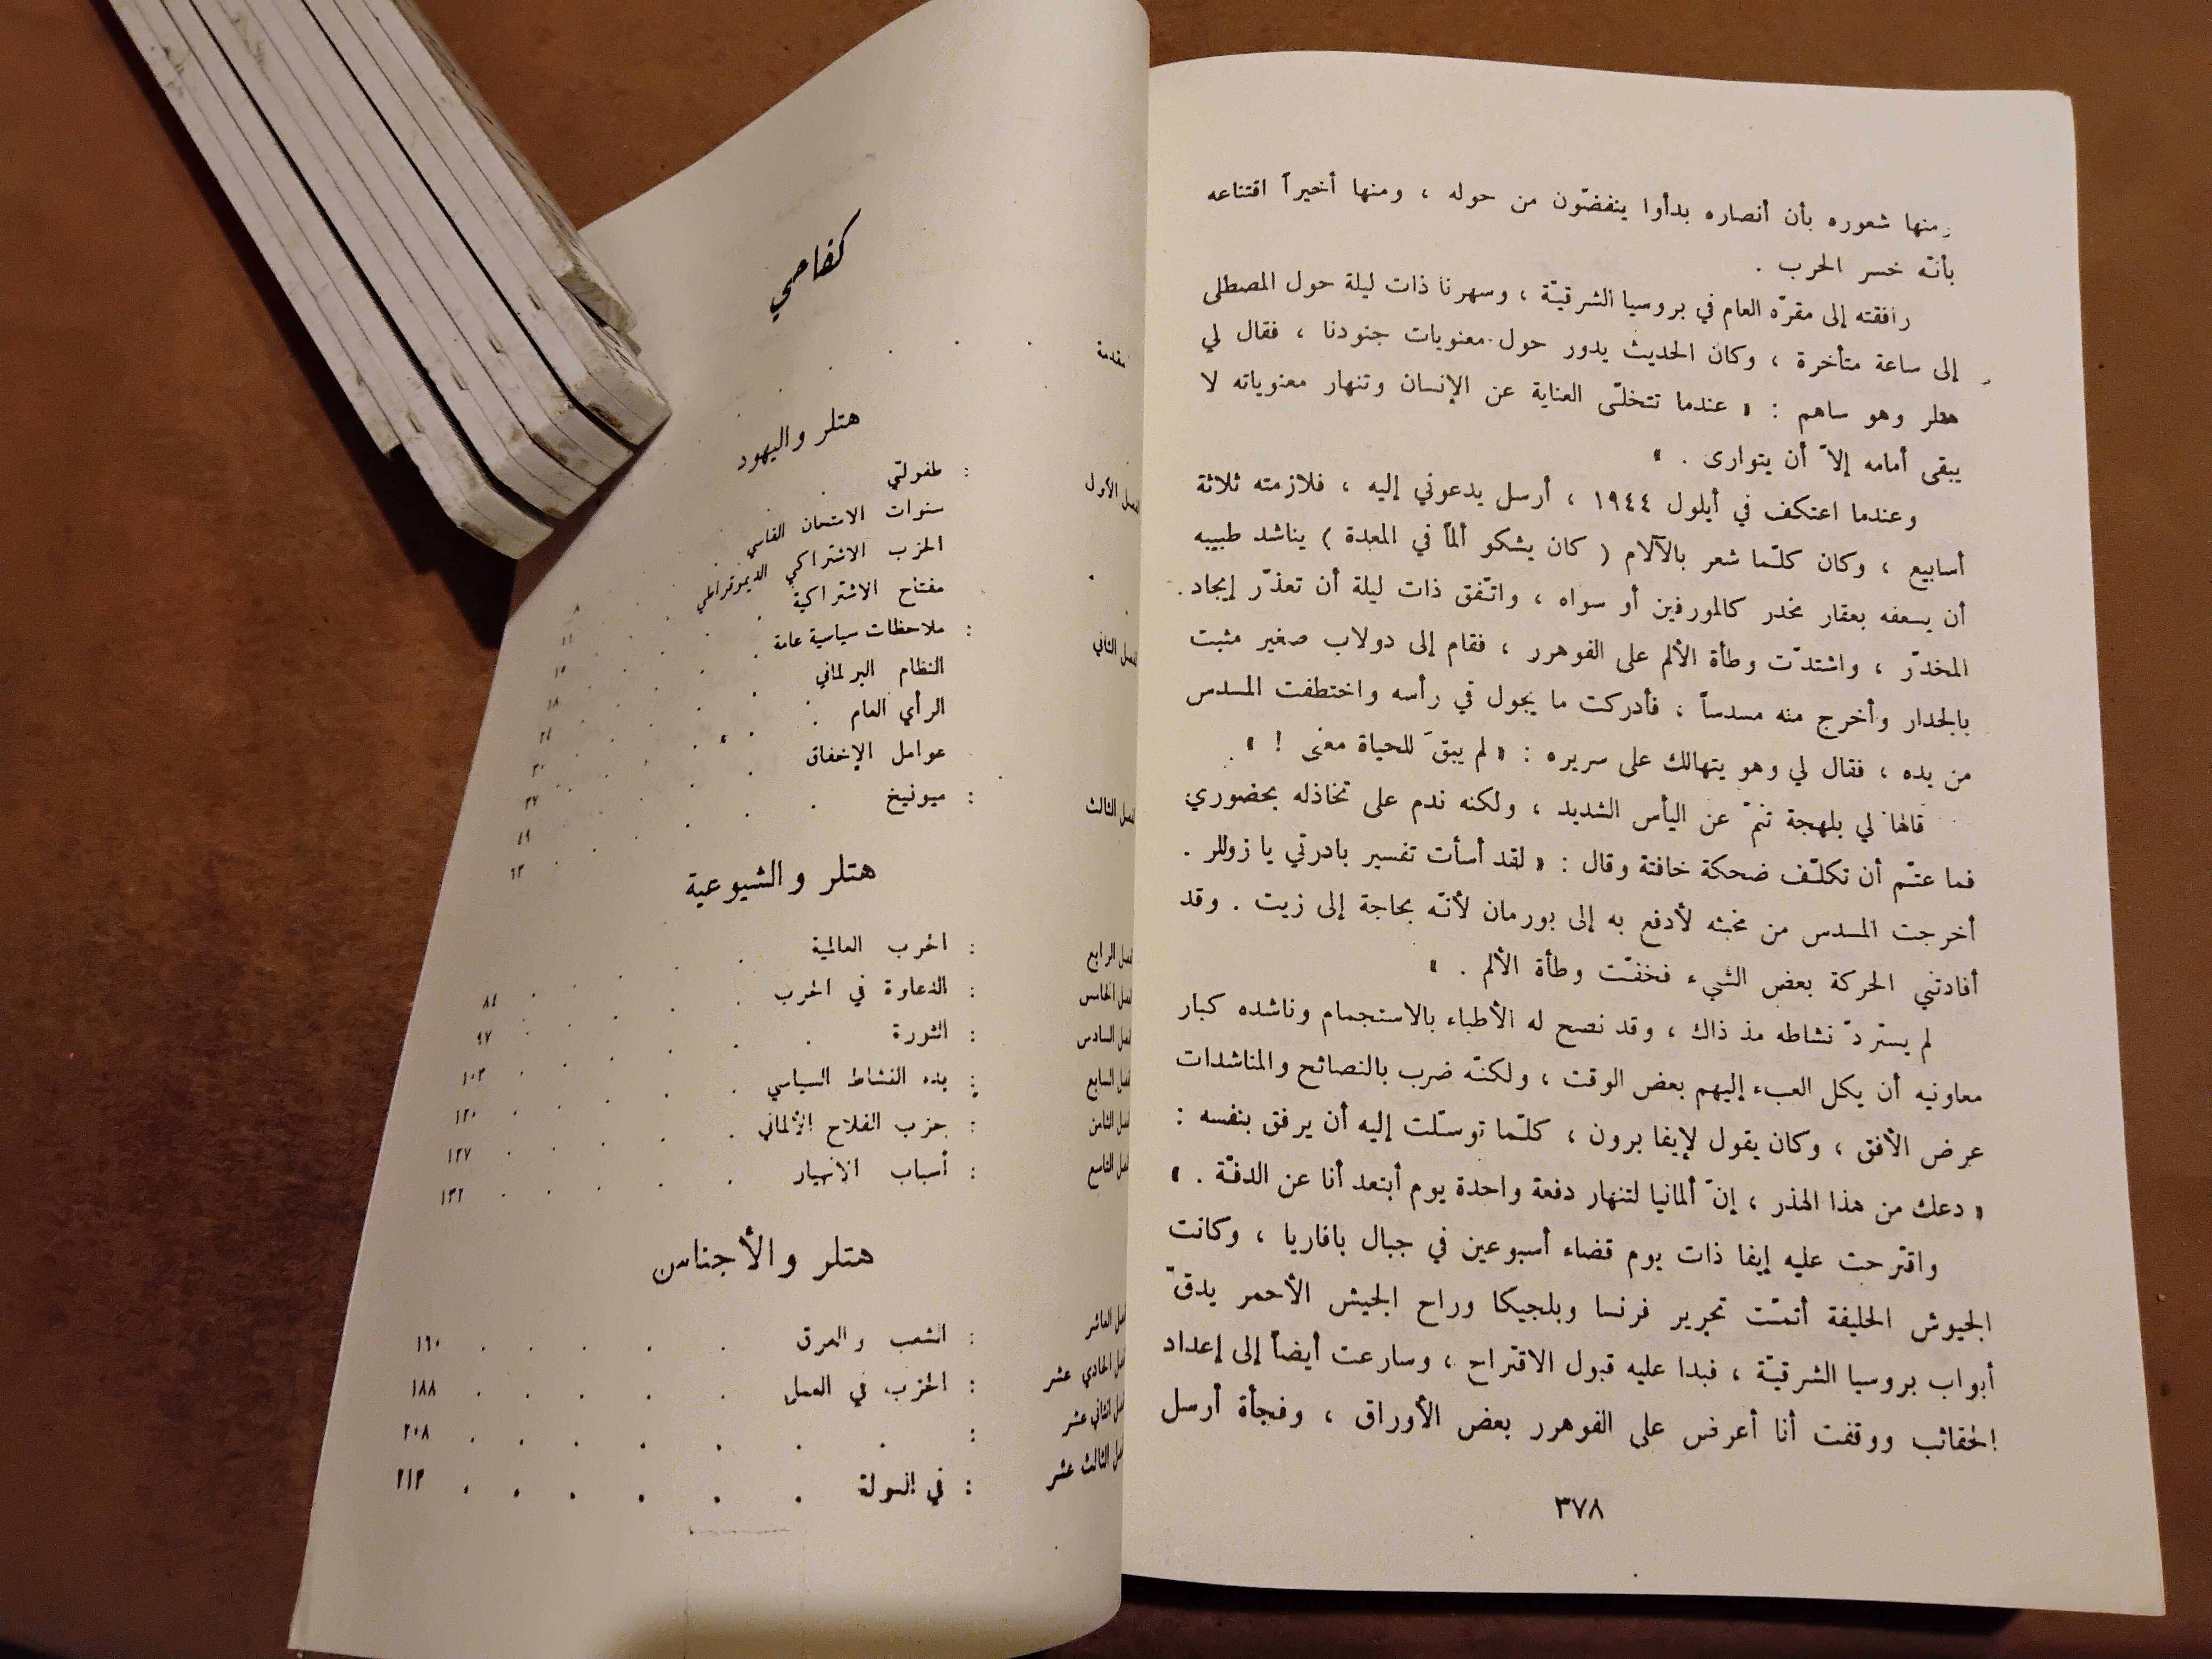 ومنها شعوره بأن أنصاره بدأوا ينفضّون من حوله ، ومنها أخيراً اقتناعه
بأنّه خسر الحرب .
رافقته إلى مقرّه العام في بروسيا الشرقيّة ، وسهرنا ذات ليلة حول المصطلى
إلى ساعة متأخرة ، وكان الحديث يدور حول معنويات جنودنا ، فقال لي
هتلر وهو ساهم : « عندما تتخلّى العناية عن الإنسان وتنهار معنوياته لا
يبقى أمامه إلاّ أن يتوارى . »
وعندما اعتكف في أيلول ١٩٤٤ ، أرسل يدعوني إليه ، فلازمته ثلاثة
أسابيع ، وكان كلّما شعر بالآلام ( كان يشكو ألماً في المعدة ) يناشد طبيبه
أن يسعفه بعقار مخدر كالمورفين أو سواه ، واتّفق ذات ليلة أن تعذّر إيجاد
المخدّر ، واشتدّت وطأة الألم على الفوهرر ، فقام إلى دولاب صغير مثبت
بالجدار وأخرج منه مسدساً ، فأدركت ما يجول في رأسه واختطفت المسدس
من يده ، فقال لي وهو يتهالك على سريره : « لم يبقَ للحياة معنى ! »
قالها لي بلهجة تنمّ عن اليأس الشديد ، ولكنه ندم على تخاذله بحضوري
فما عتّم أن تكلّف ضحكة خافتة وقال : « لقد أسأت تفسير بادرتي يا زوللر .
أخرجت المسدس من مخبئه لأدفع به إلى بورمان لأنّه بحاجة إلى زيت . وقد
أفادتني الحركة بعض الشيء فخفّت وطأة الألم . »
لم يستردّ نشاطه مذ ذاك ، وقد نصح له الأطباء بالاستجمام وناشده كبار
معاونيه أن يكل العبء إليهم بعض الوقت ، ولكنّه ضرب بالنصائح والمناشدات
عرض الأفق ، وكان يقول لإيفا برون ، كلّما توسّلت إليه أن يرفق بنفسه :
« دعك من هذا الهذر ، إنّ ألمانيا لتنهار دفعة واحدة يوم أبتعد أنا عن الدفّة . »
واقترحت عليه إيفا ذات يوم قضاء أسبوعين في جبال بافاريا ، وكانت
الجيوش الحليفة أتمّت تحرير فرنسا وبلجيكا وراح الجيش الأحمر يدقّ
أبواب بروسيا الشرقيّة ، فبدا عليه قبول الاقتراح ، وسارعت أيضاً إلى إعداد
الحقائب ووقفت أنا أعرض على الفوهرر بعض الأوراق ، وفجأة أرسل
٣٧٨
كفاحي
مقدمة
هتلر واليهود
الفصل الأول : طفولتي
سنوات الامتحان القاسي ٨
الحزب الاشتراكي الديموقراطي ١١
مفتاح الاشتراكية ١٥
الفصل الثاني : ملاحظات سياسية عامة ١٨
النظام البرلماني ٢٤
الرأي العام ٣٠
عوامل الإخفاق ٣٧
الفصل الثالث : ميونيخ ٤٩
٦٣
هتلر والشيوعية
الفصل الرابع : الحرب العالمية ٨٤
الفصل الخامس : الدعاوة في الحرب ٩٧
الفصل السادس : الثورة ١٠٣
الفصل السابع : بدء النشاط السياسي ١٢٠
الفصل الثامن : حزب الفلاح الألماني ١٢٧
الفصل التاسع : أسباب الانهيار ١٣٢
هتلر والأجناس
الفصل العاشر : الشعب والعرق ١٦٠
الفصل الحادي عشر : الحزب في العمل ١٨٨
الفصل الثاني عشر : ٢٠٨
الفصل الثالث عشر : في الدولة ٢١٢